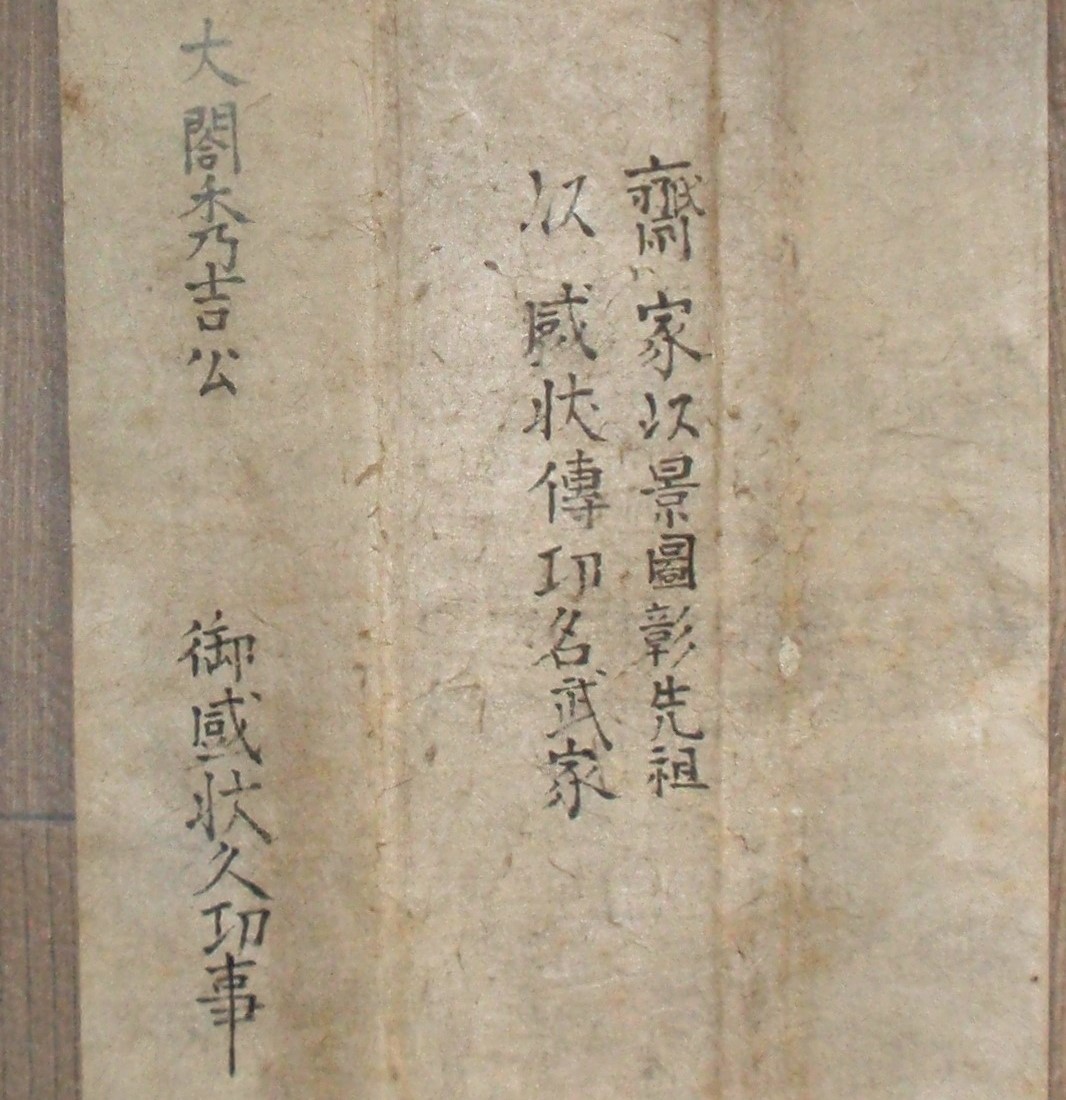 齋家以景圖彰先祖
以感状傳功名武家
大閤秀吉公
御感状久功事